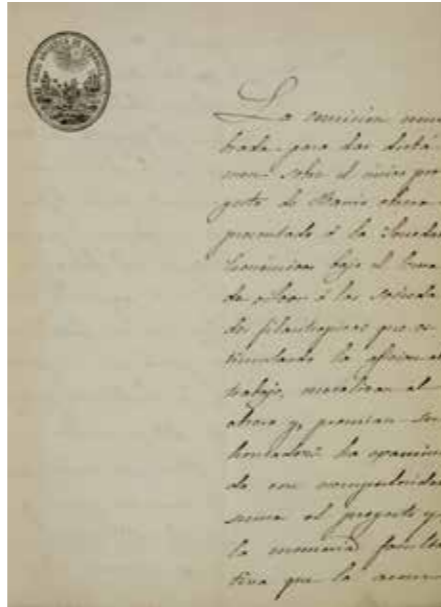 La comision nom
brada para dar dictá
men sobre el único pro
yecto de Barrio obrero
presentado á la Socieda
Económica bajo el lema
de á las socieda
des filantropicas que es
timulando la aficion al
trabajo, moralizan al
obrero y premian su
honradez ha examina
do con
el proyecto y
la memoria faculta
tiva que la acom